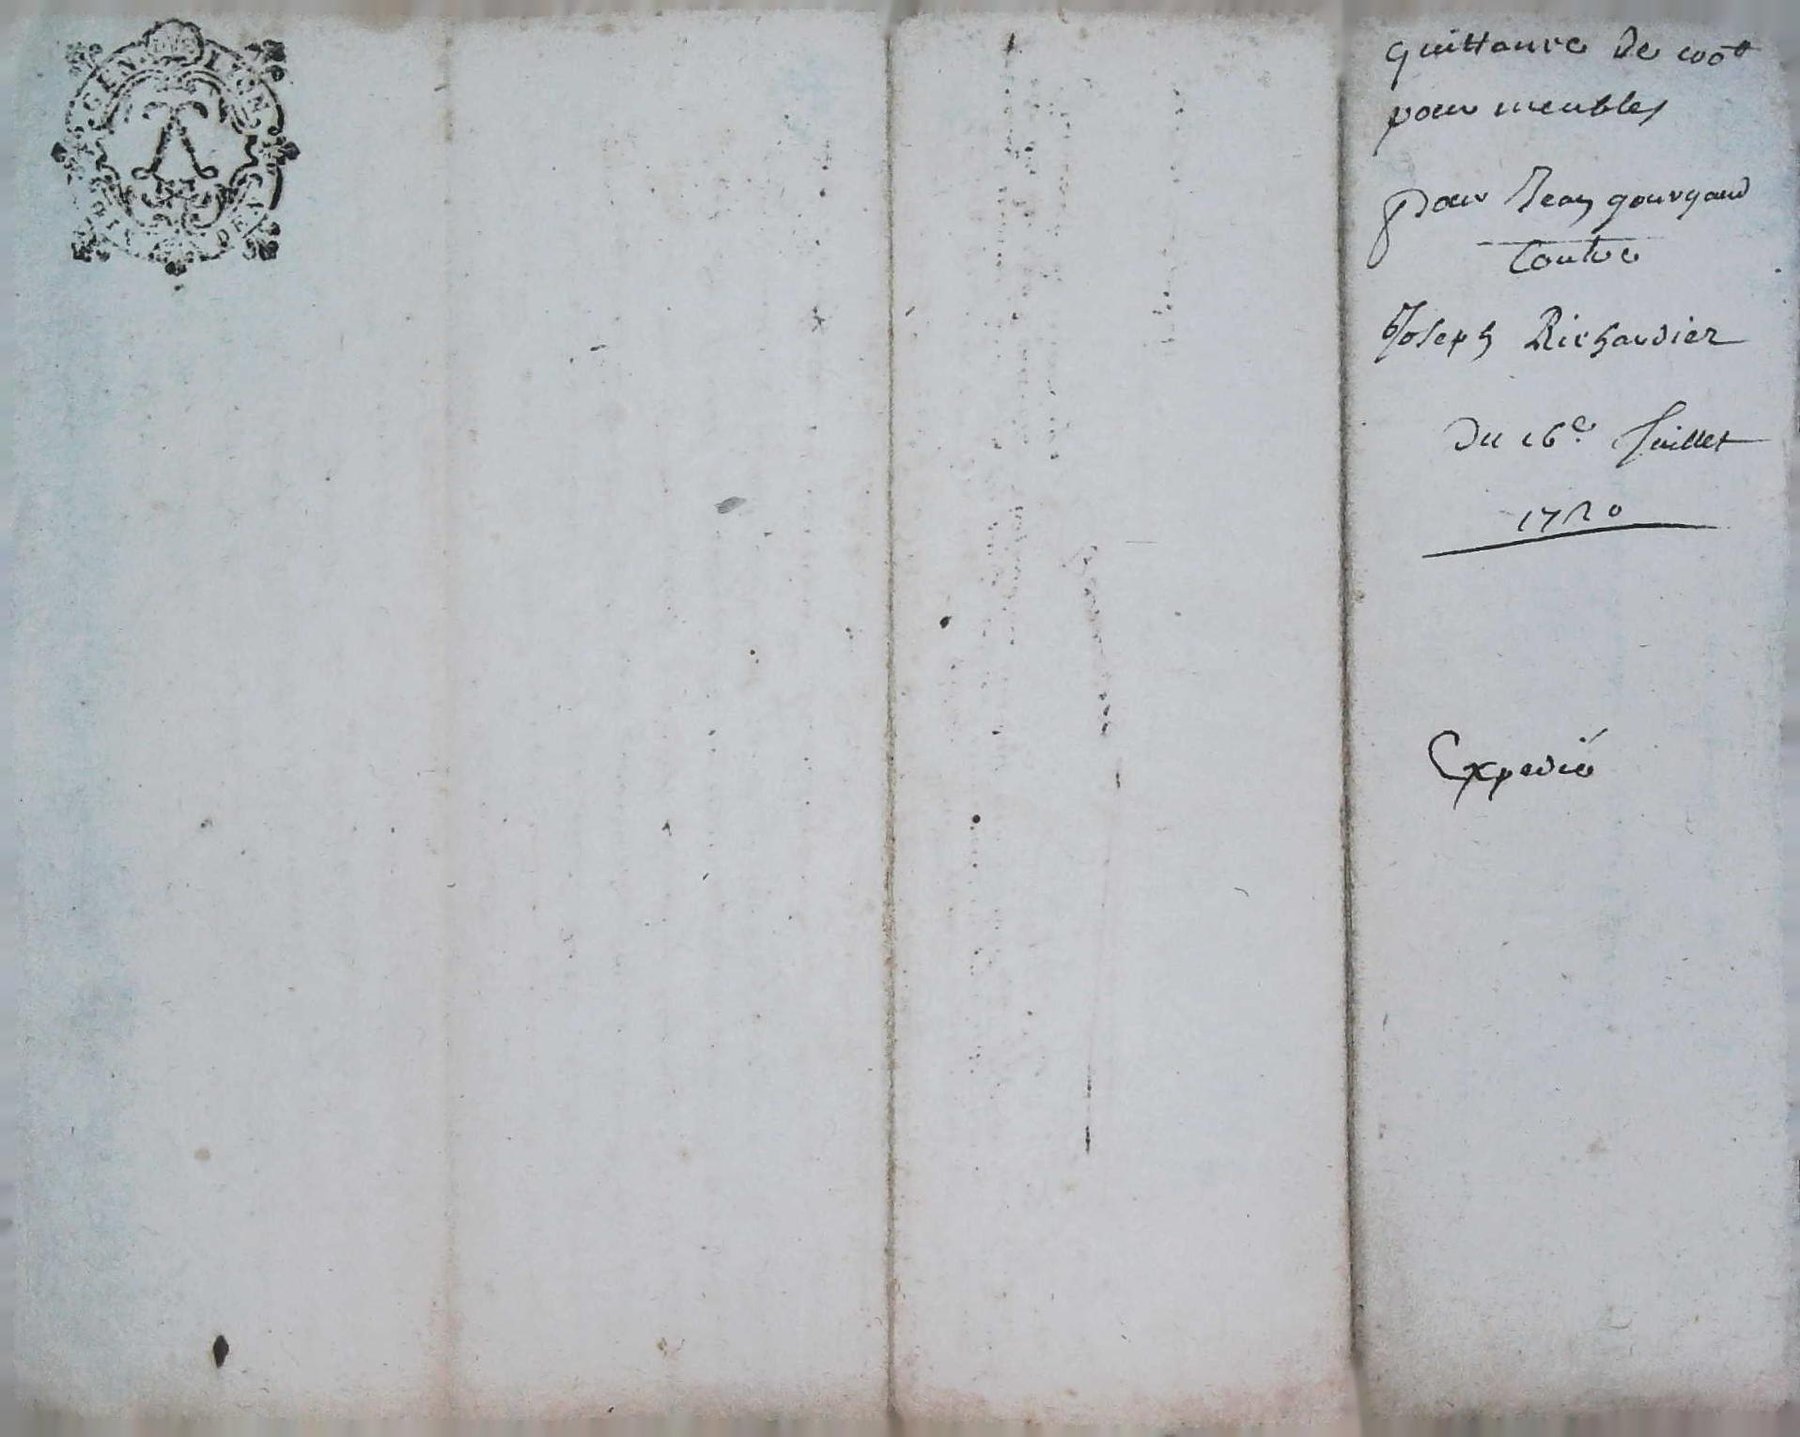 GEN. DE LYON
quittance de 100tt
pour meubles
pour Jean gourgaud
Contre
Joseph Richardier
Du 16e Juillet
1720
Expedié